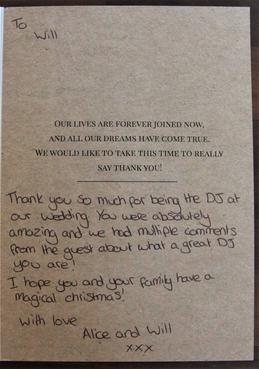 To
Will
OUR LIVES ARE FOREVER JOINED NOW,
AND ALL OUR DREAMS HAVE COME TRUE.
WE WOULD LIKE TO TAKE THIS TIME TO REALLY
SAY THANK YOU!
Thank you so much for being the DJ at
our wedding. You were absolutely
amazing and we had multiple comments
from the guest about what a great DJ
you are!
I hope you and your family have a
magical christmas!
With love
Alice and Will
xxx